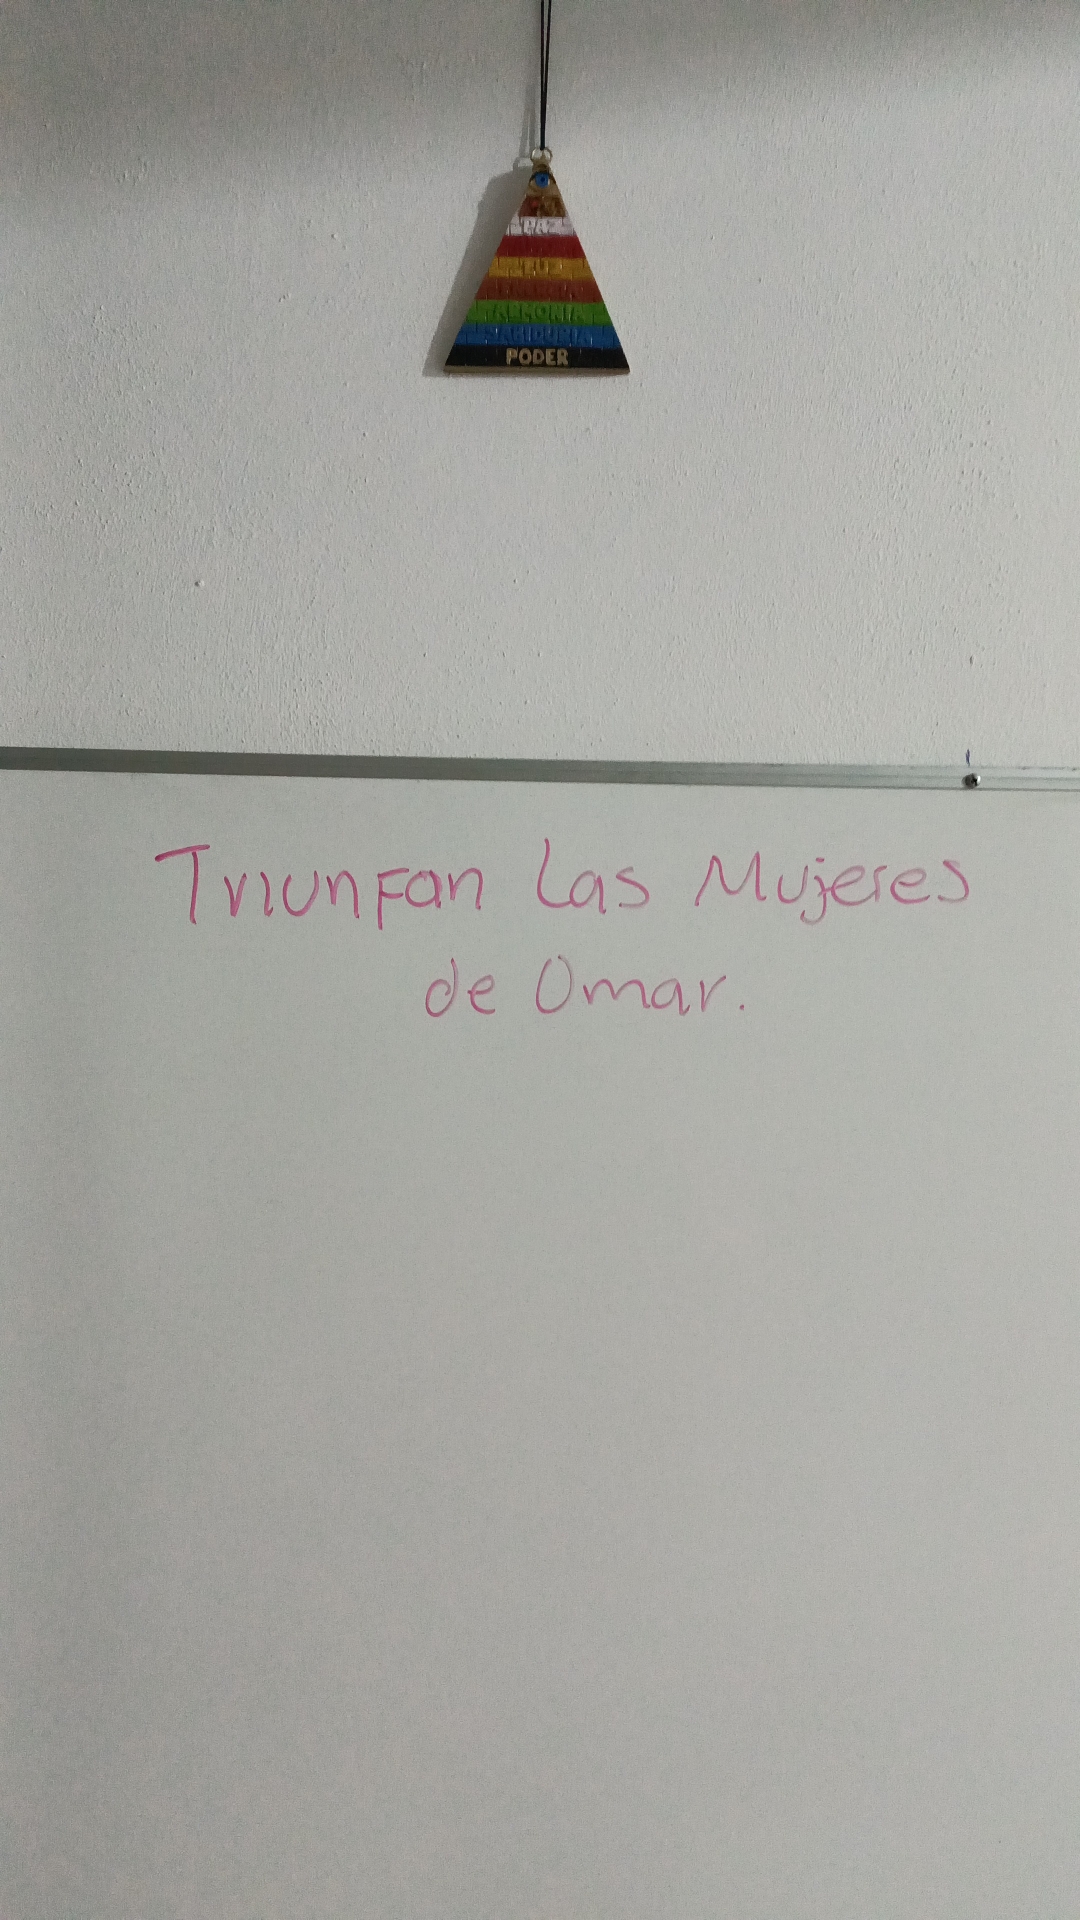 PAZ
LUZ
ARMONIA
SABIDURIA
PODER
Triunfan Las Mujeres
de Omar.